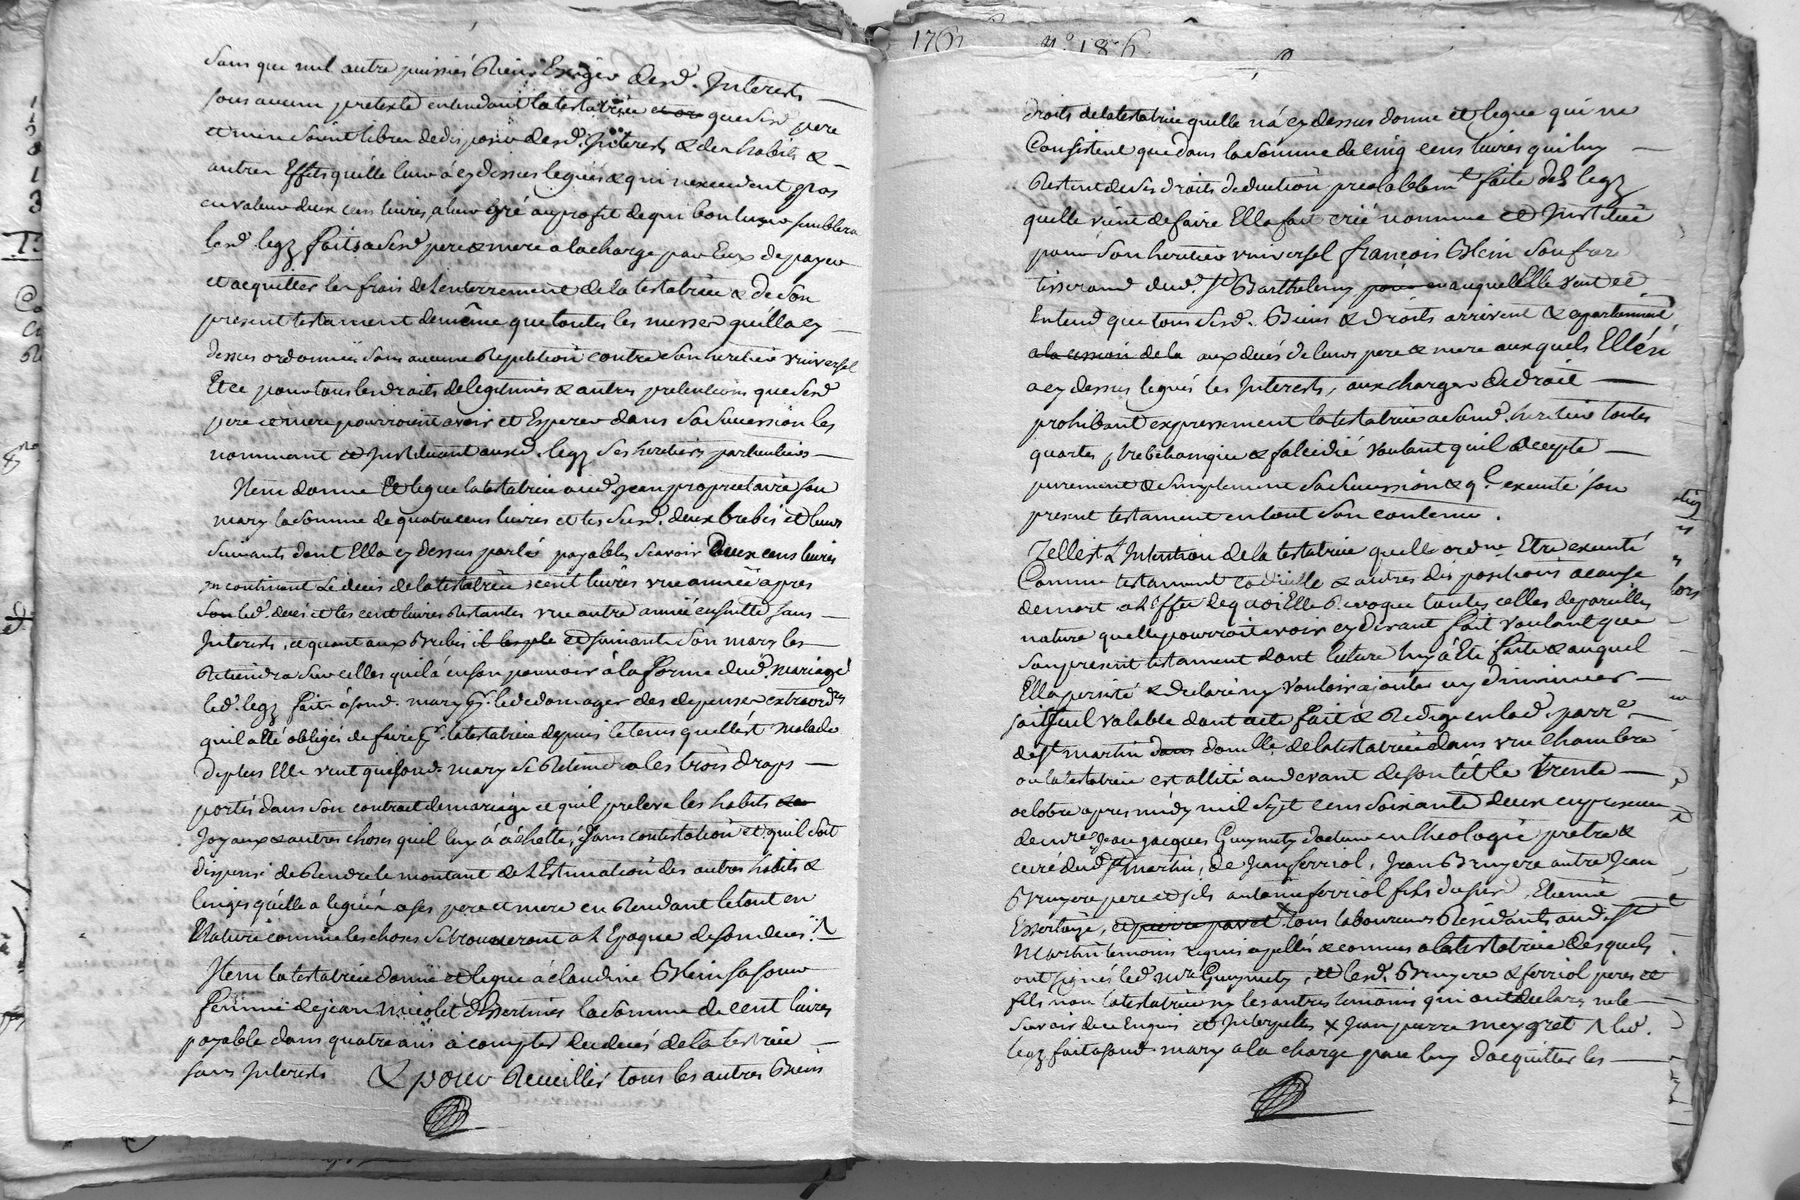 Sans que nul autre puisse Rien Exiger desd. Interets
sous aucun pretexte entendant la testatrice que sesd pere
et mere soint libres dedisposer desd. Interets & des habits &
autres Effets quelle leur à cy dessus legués & qui nexcedent pas
en valeur deux cens livres, a leur gré au profit de qui bon leur semblera
lesd. legz faits a sesd pere & mere a la charge par Eux de payer
et acquitter les frais de lenterrement de la testatrice & de son
present testament de même que toutes les messes quelle a cy
dessus ordonnées sans aucune Repetition contre son heritier universel
Et ce pour tous les droits de legitimes & autres pretentions que sesd
pere et mere pourroint avoir et Esperer dans sa succession les
nommant et Instituant auxd. legz ses heritiers particuliers
Item donne Et legue la testatrice aud. jean proprietaire son
mary la somme de quatre cens livres et les susd. deux brebis et leurs
suivants dont Ella cy dessus parlé payables scavoir Deux cens livres
incontinant le deces de la testatrice, cent livres une année apres
son led. deces et les cent livres Restantes une autre année ensuitte sans
Interets, et quant aux Brebis et suivants son mary les
Retiendra sur celles quil à en son pouvoir à la forme dud. mariage
led. legz fait à sond. mary pr. le dedomager des depenses extraordres
quil a été obligés de faire pr. la testatrice depuis le tems quellést malade
deplus Elle veut que sond. mary se Retiendra les trois draps
portés dans son contrait de mariage et quil preleve les habits
Joyaux & autres choses quil luy à áchetté, sans contestation et quil soit
dispensé de Rendre le montant de l Estimation des autres habits &
linges quélle a legués a ses pere et mere en Rendant le tout en
Nature comme les choses se trouveront a l Epoque de son deces. /\
Item la testatrice donne et legue à claudine Blein sa soeur
femme de jean nicolet dEssertines la somme de cent livres
payable dans quatre ans à compter du deces de la testrice
sans Interets & pour Recueillir tous les autres Biens
1762 n.º 186
droits de la testatrice quelle n'á cy dessus donne et legue qui ne
Consistent que dans la somme de cinq cens livres qui luy
Restent de ses droits deduction prealablemt faite des legz
quelle vient de faire Ella fait crée nomme et Institué
pour son heritier universel françois Blein son frere
tisserand dud. St Barthelemy auquel Elle veut et
Entend que tous sesd. Biens & droits arrivent & apartiennent
aux deces de leurs pere & mere auxquels Elle en
a cy dessus legués les Interets, aux charges de droit
prohibant expressement la testatrice a sond. heritier toutes
quartes trebelliannique & falcidié voulant quil accepte
purement & simplement sa succession & q.l execute son
present testament en tout son contenu.
Telle est L'Intention de la testatrice quelle ordne Etre executé
Comme testament codicille & autres dispositions a cause
de mort a l Effet de quoi Elle Revoque toutes celles de pareilles
nature quelle pourroit avoir cy devant fait voulant que
son present testament dont lecture luy à Eté faite & auquel
Ella persité & declaré ny vouloir ajouter ny diminuer
soit seul valable dont acte fait & Redigé en lad. parre.
de St martin domlle de la testatrice dans une chambre
ou la testatrice est allité au devant de son lit le trente
octobre apres midy mil sept cens soixante deux en presence
de mre. Jean jacques Guymety docteur en theologie pretre &
curé dud. St martin, de jean ferriol, Jean Bruyere autre Jean
Bruyere pere et fils antoine ferriol fils dusus, Etienne
Essertaize, x tous laboureurs Residants aud. St
Martin temoins requis apellés & connus a la testatrice desquels
ont signés led. mre Guymety, et lesd. Bruyere & ferriol peres et
fils non la testatrice ny les autres temoins qui ont declarés ne le
scavoir de ce Enquis et Interpellés x Jean pierre meygret /\ led.
legz fait a sond. mary a la charge par luy d'acquitter les